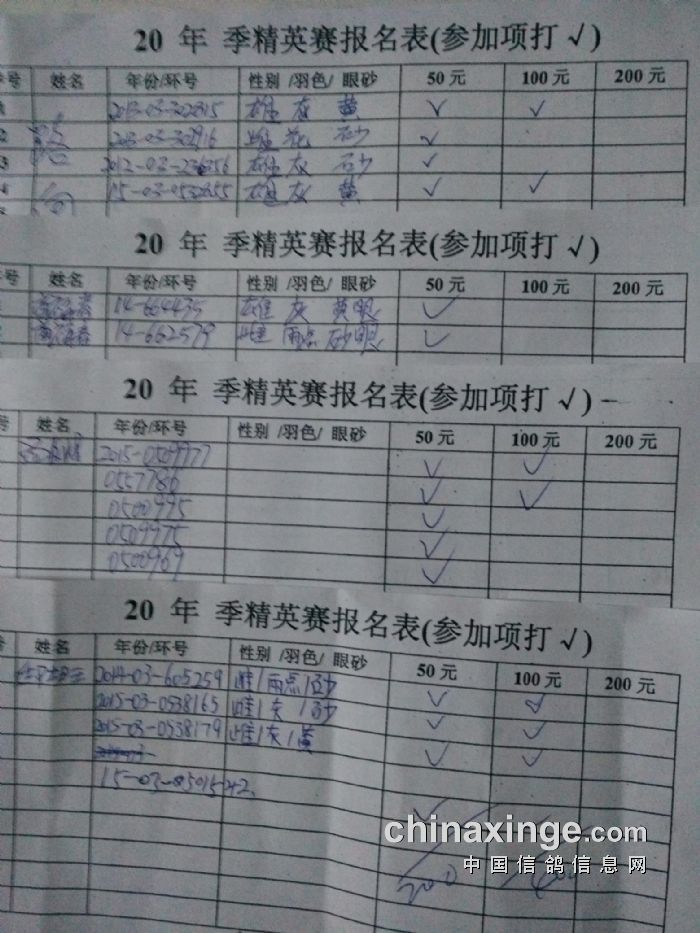 20 年 季精英赛报名表(参加项打 √)
号 姓名 年份/环号 性别 /羽色/ 眼砂 50 元 100 元 200 元
2013-03-302815 雄 灰 黄 √ √
2 雌 花 砂 √
3 雄 灰 砂 √
4 雄 灰 黄 √ √
20 年 季精英赛报名表(参加项打 √)
号 姓名 年份/环号 性别 /羽色/ 眼砂 50 元 100 元 200 元
14-664435 雄 灰 黄眼 √
14-662579 雌 雨点 砂眼 √
20 年 季精英赛报名表(参加项打 √)
号 姓名 年份/环号 性别 /羽色/ 眼砂 50 元 100 元 200 元
2015-0509777 √ √
0557786 √ √
0500995 √
0509975 √
0500969 √
20 年 季精英赛报名表(参加项打 √)
姓名 年份/环号 性别 /羽色/ 眼砂 50 元 100 元 200 元
2014-03-605259 雌/雨点/砂 √ √
2015-03-0538165 雌/灰/砂 √ √
2015-03-0538179 雌/灰/黄 √ √
chinaxinge.com
中国信鸽信息网